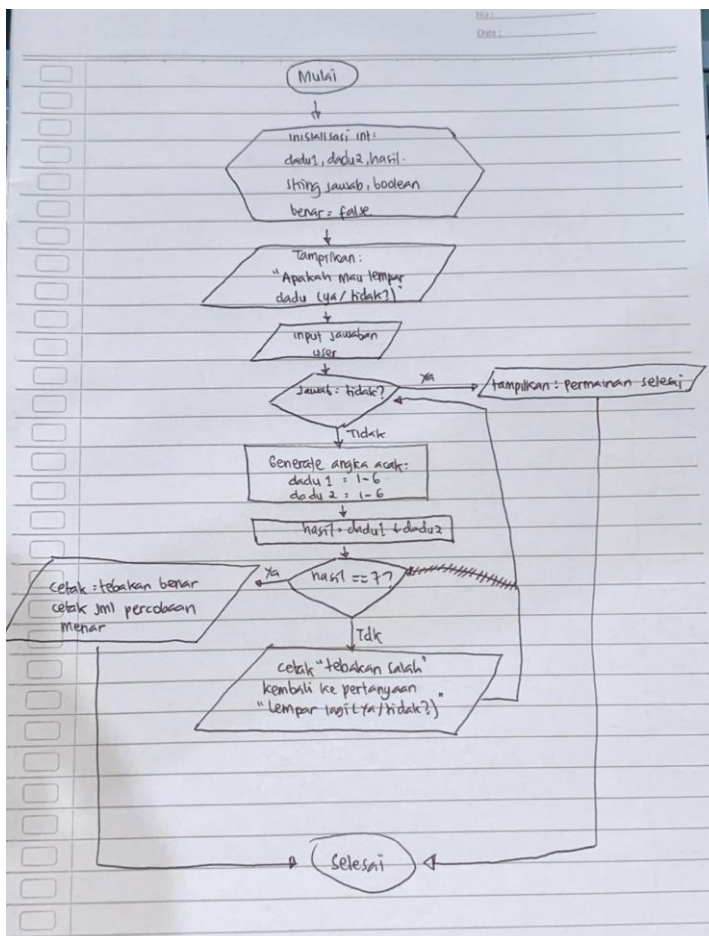 No :
Date :
Mulai
inisialisasi int:
dadu1, dadu2, hasil.
String jawab, boolean
benar = false
Tampilkan :
"Apakah mau lempar
dadu (ya/tidak?)"
input jawaban
user
jawab = tidak?
Ya
tampilkan : permainan selesai
Tidak
Generate angka acak:
dadu 1 = 1-6
dadu 2 = 1-6
hasil = dadu1 + dadu2
hasil == 7?
Ya
cetak : tebakan benar
cetak jml percobaan
menar
Tdk
cetak "tebakan salah"
kembali ke pertanyaan
"lempar lagi (ya/tidak?)"
Selesai